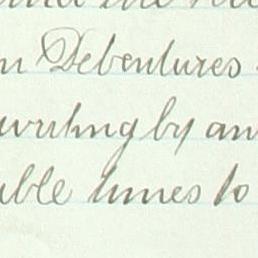 n Debentures
writing by an
able times to